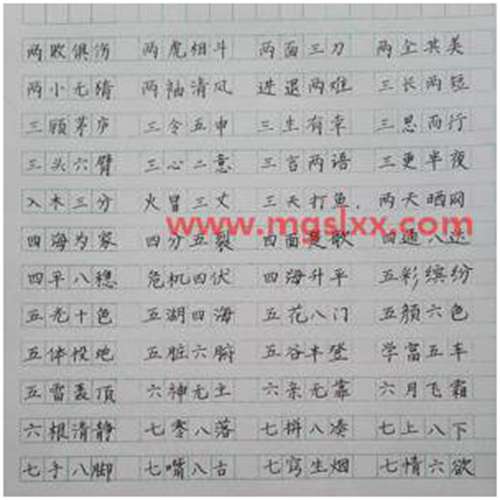 两败俱伤 两虎相斗 两面三刀 两全其美
两小无猜 两袖清风 进退两难 三长两短
三顾茅庐 三令五申 三生有幸 三思而行
三头六臂 三心二意 三言两语 三更半夜
入木三分 火冒三丈 三天打鱼，两天晒网
www.mgslxx.com
四海为家 四分五裂 四面楚歌 四通八达
四平八稳 危机四伏 四海升平 五彩缤纷
五光十色 五湖四海 五花八门 五颜六色
五体投地 五脏六腑 五谷丰登 学富五车
五雷轰顶 六神无主 六亲无靠 六月飞霜
六根清静 七零八落 七拼八凑 七上八下
七手八脚 七嘴八舌 七窍生烟 七情六欲